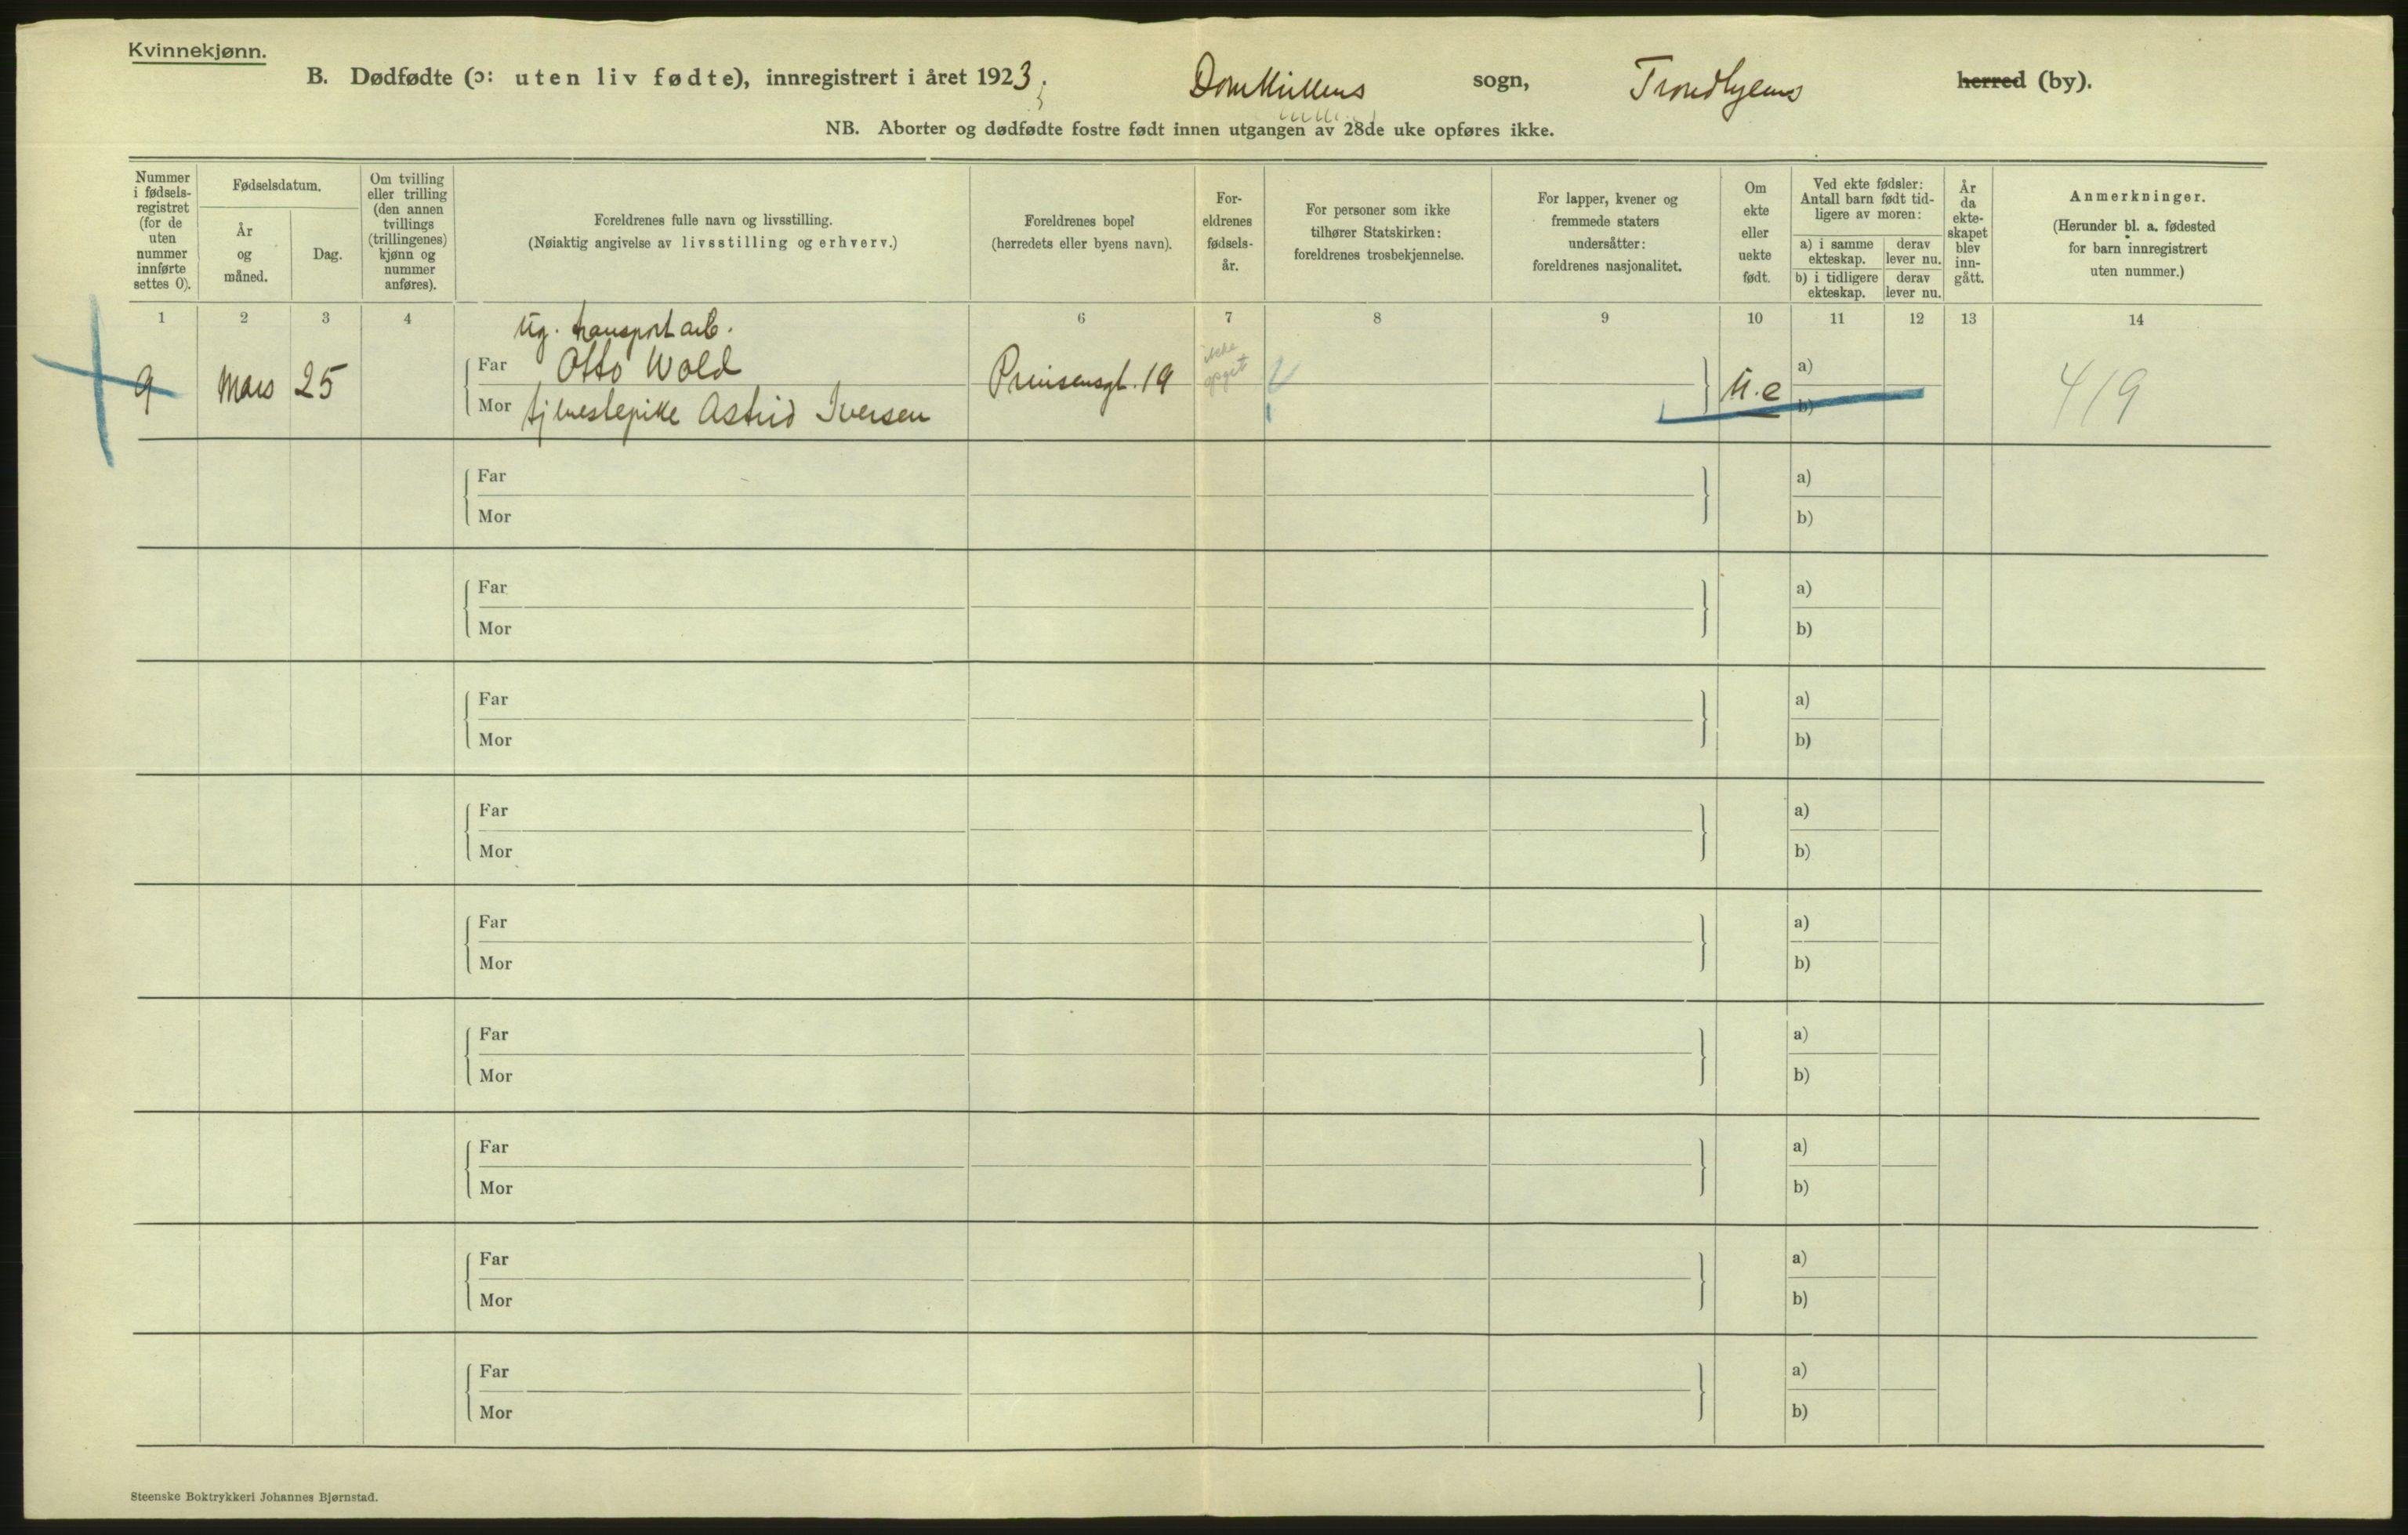 Kvinnekjønn.
B. Dødfødte (ɔ: uten liv fødte), innregistrert i året 1923; Domkirkens sogn, Trondhjems herred (by).
NB. Aborter og dødfødte fostre født innen utgangen av 28de uke opføres ikke.
Nummer i fødselsregistret (for de uten nummer innførte settes 0).
Fødselsdatum.
År og måned.
Dag.
Om tvilling eller trilling (den annen tvillings (trillingenes) kjønn og nummer anføres).
Foreldrenes fulle navn og livsstilling.
(Nøiaktig angivelse av livsstilling og erhverv.)
Foreldrenes bopel
(herredets eller byens navn).
Foreldrenes fødselsår.
For personer som ikke tilhører Statskirken: foreldrenes trosbekjennelse.
For lapper, kvener og fremmede staters undersåtter: foreldrenes nasjonalitet.
Om ekte eller uekte født.
Ved ekte fødsler: Antall barn født tidligere av moren:
a) i samme ekteskap.
derav lever nu.
b) i tidligere ekteskap.
derav lever nu.
År da ekteskapet blev inngått.
Anmerkninger.
(Herunder bl. a. fødested for barn innregistrert uten nummer.)
1 2 3 4 6 7 8 9 10 11 12 13 14
ug. transportarb.
9 Mars 25 Far Otto Wold Prinsensgt. 19 ikke opgit u.e a) 4/9
Mor tjenestepike Astrid Iversen b)
Far a)
Mor b)
Far a)
Mor b)
Far a)
Mor b)
Far a)
Mor b)
Far a)
Mor b)
Far a)
Mor b)
Far a)
Mor b)
Far a)
Mor b)
Far a)
Mor b)
Steenske Boktrykkeri Johannes Bjørnstad.